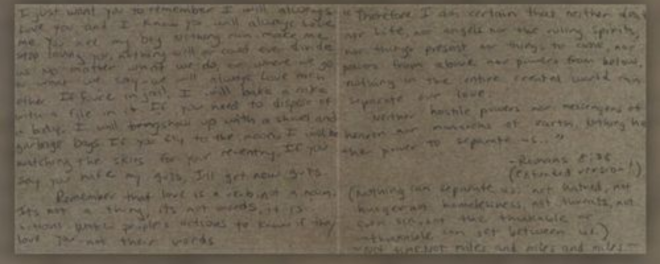 I just want you to remember I will always
love you and I know you will always love
me. You are my boy. Nothing can make me
stop loving you, nothing will or could ever divide
us. No matter what we do, or where we go
or what we say, we will always love each
other. If you're in jail, I will bake a cake
with a file in it. If you need to dispose of
a body, I will bring show up with a shovel and
garbage bags. If you fly to the moon, I will be
watching the skies for your reentry. If you
say you hate my guts, I'll get new guts.
Remember that love is a verb, not a noun.
Its not a thing, its not words, it is
actions. Watch people's actions to know if they
love you - not their words.
"Therefore I am certain that neither death
nor life, nor angels nor the ruling spirits,
nor things present nor things to come, nor
powers from above nor powers from below,
nothing in the entire created world can
separate our love.
Neither hostile powers nor messengers of
heaven nor monarchs of earth, nothing has
the power to separate us..."
- Romans 8:38
(extended version!)
(Nothing can separate us: not hatred, not
hunger, not homelessness, not threats, not
even sin, not the thinkable or
unthinkable can get between us.)
not sinclist miles and miles and miles